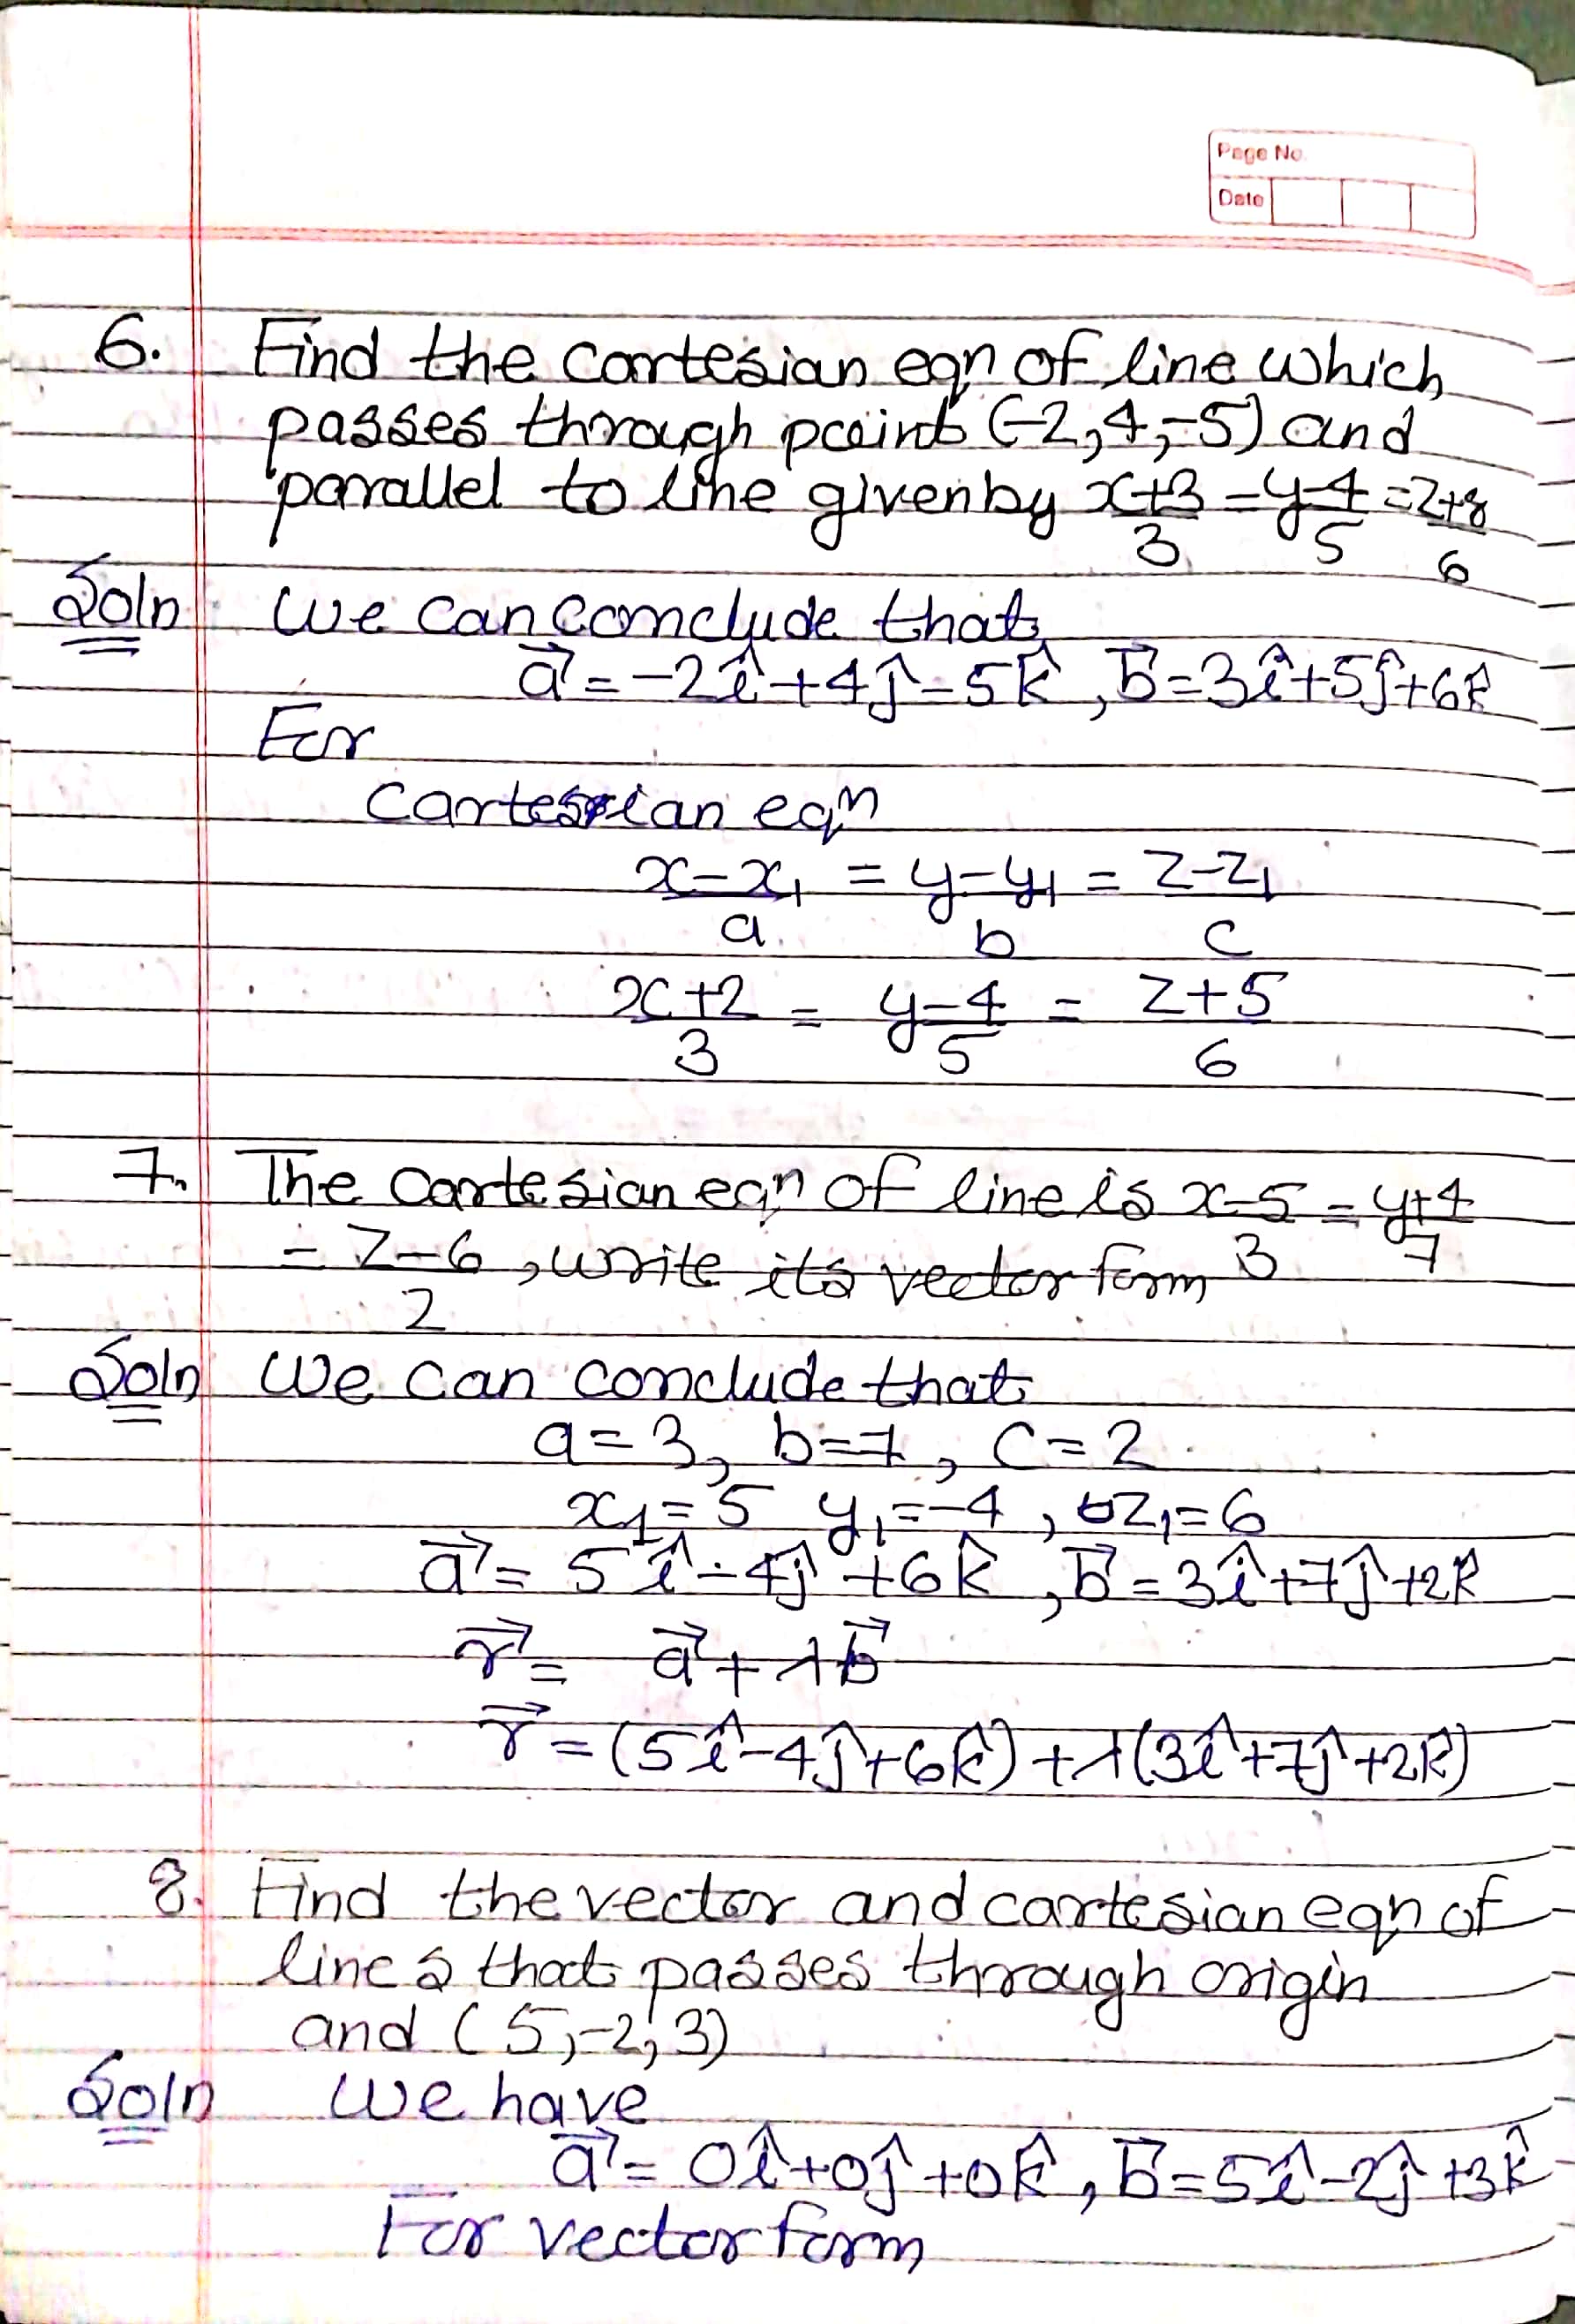 Page No.
Date
6. Find the cartesian eqn of line which
passes through point (-2,4,-5) and
parallel to line given by x+3/3 = y-4/5 = z+8/6
Soln We can conclude that
a⃗ = -2î+4ĵ-5k̂, b⃗=3î+5ĵ+6k̂
For
cartesian eqn
x-x₁/a = y-y₁/b = z-z₁/c
x+2/3 = y-4/5 = z+5/6
7. The cartesian eqn of line is x-5/3 = y+4/7
= z-6/2, write its vector form
Soln We can conclude that
a=3, b=7, c=2
x₁=5 y₁=-4, z₁=6
a⃗= 5î-4ĵ+6k̂, b⃗=3î+7ĵ+2k̂
r⃗= a⃗+λb⃗
r⃗=(5î-4ĵ+6k̂)+λ(3î+7ĵ+2k̂)
8. Find the vector and cartesian eqn of
lines that passes through origin
and (5,-2,3)
Soln We have
a⃗= 0î+0ĵ+0k̂, b⃗=5î-2ĵ+3k̂
For vector form